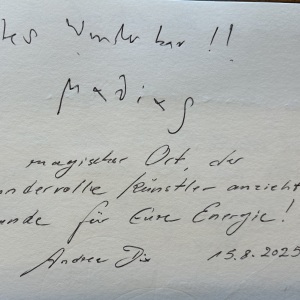 Wunderbar!!
magischer Ort, der
ndervolle Künstler anzieht
für Eure Energie!
Andrea Dix 15.8.2025